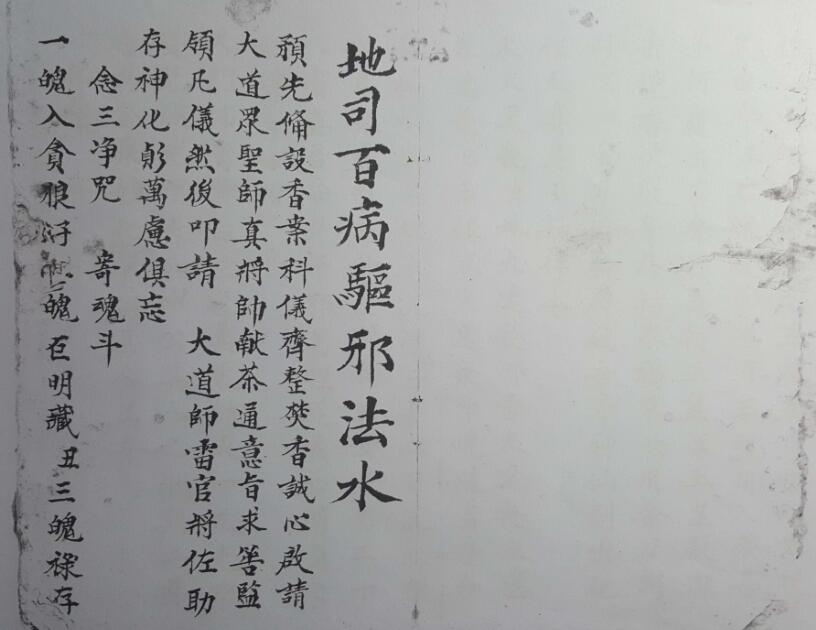 地司百病驅邪法水
預先俻設香案科儀齊整焚香誠心啟請
大道眾聖師真將帥献茶通意旨求善監
領凡儀然後叩請 大道師雷官將佐助
存神化形萬慮俱忘
念三净咒 寄魂斗
一魄入貪狼 魄巨明藏丑三魄禄存